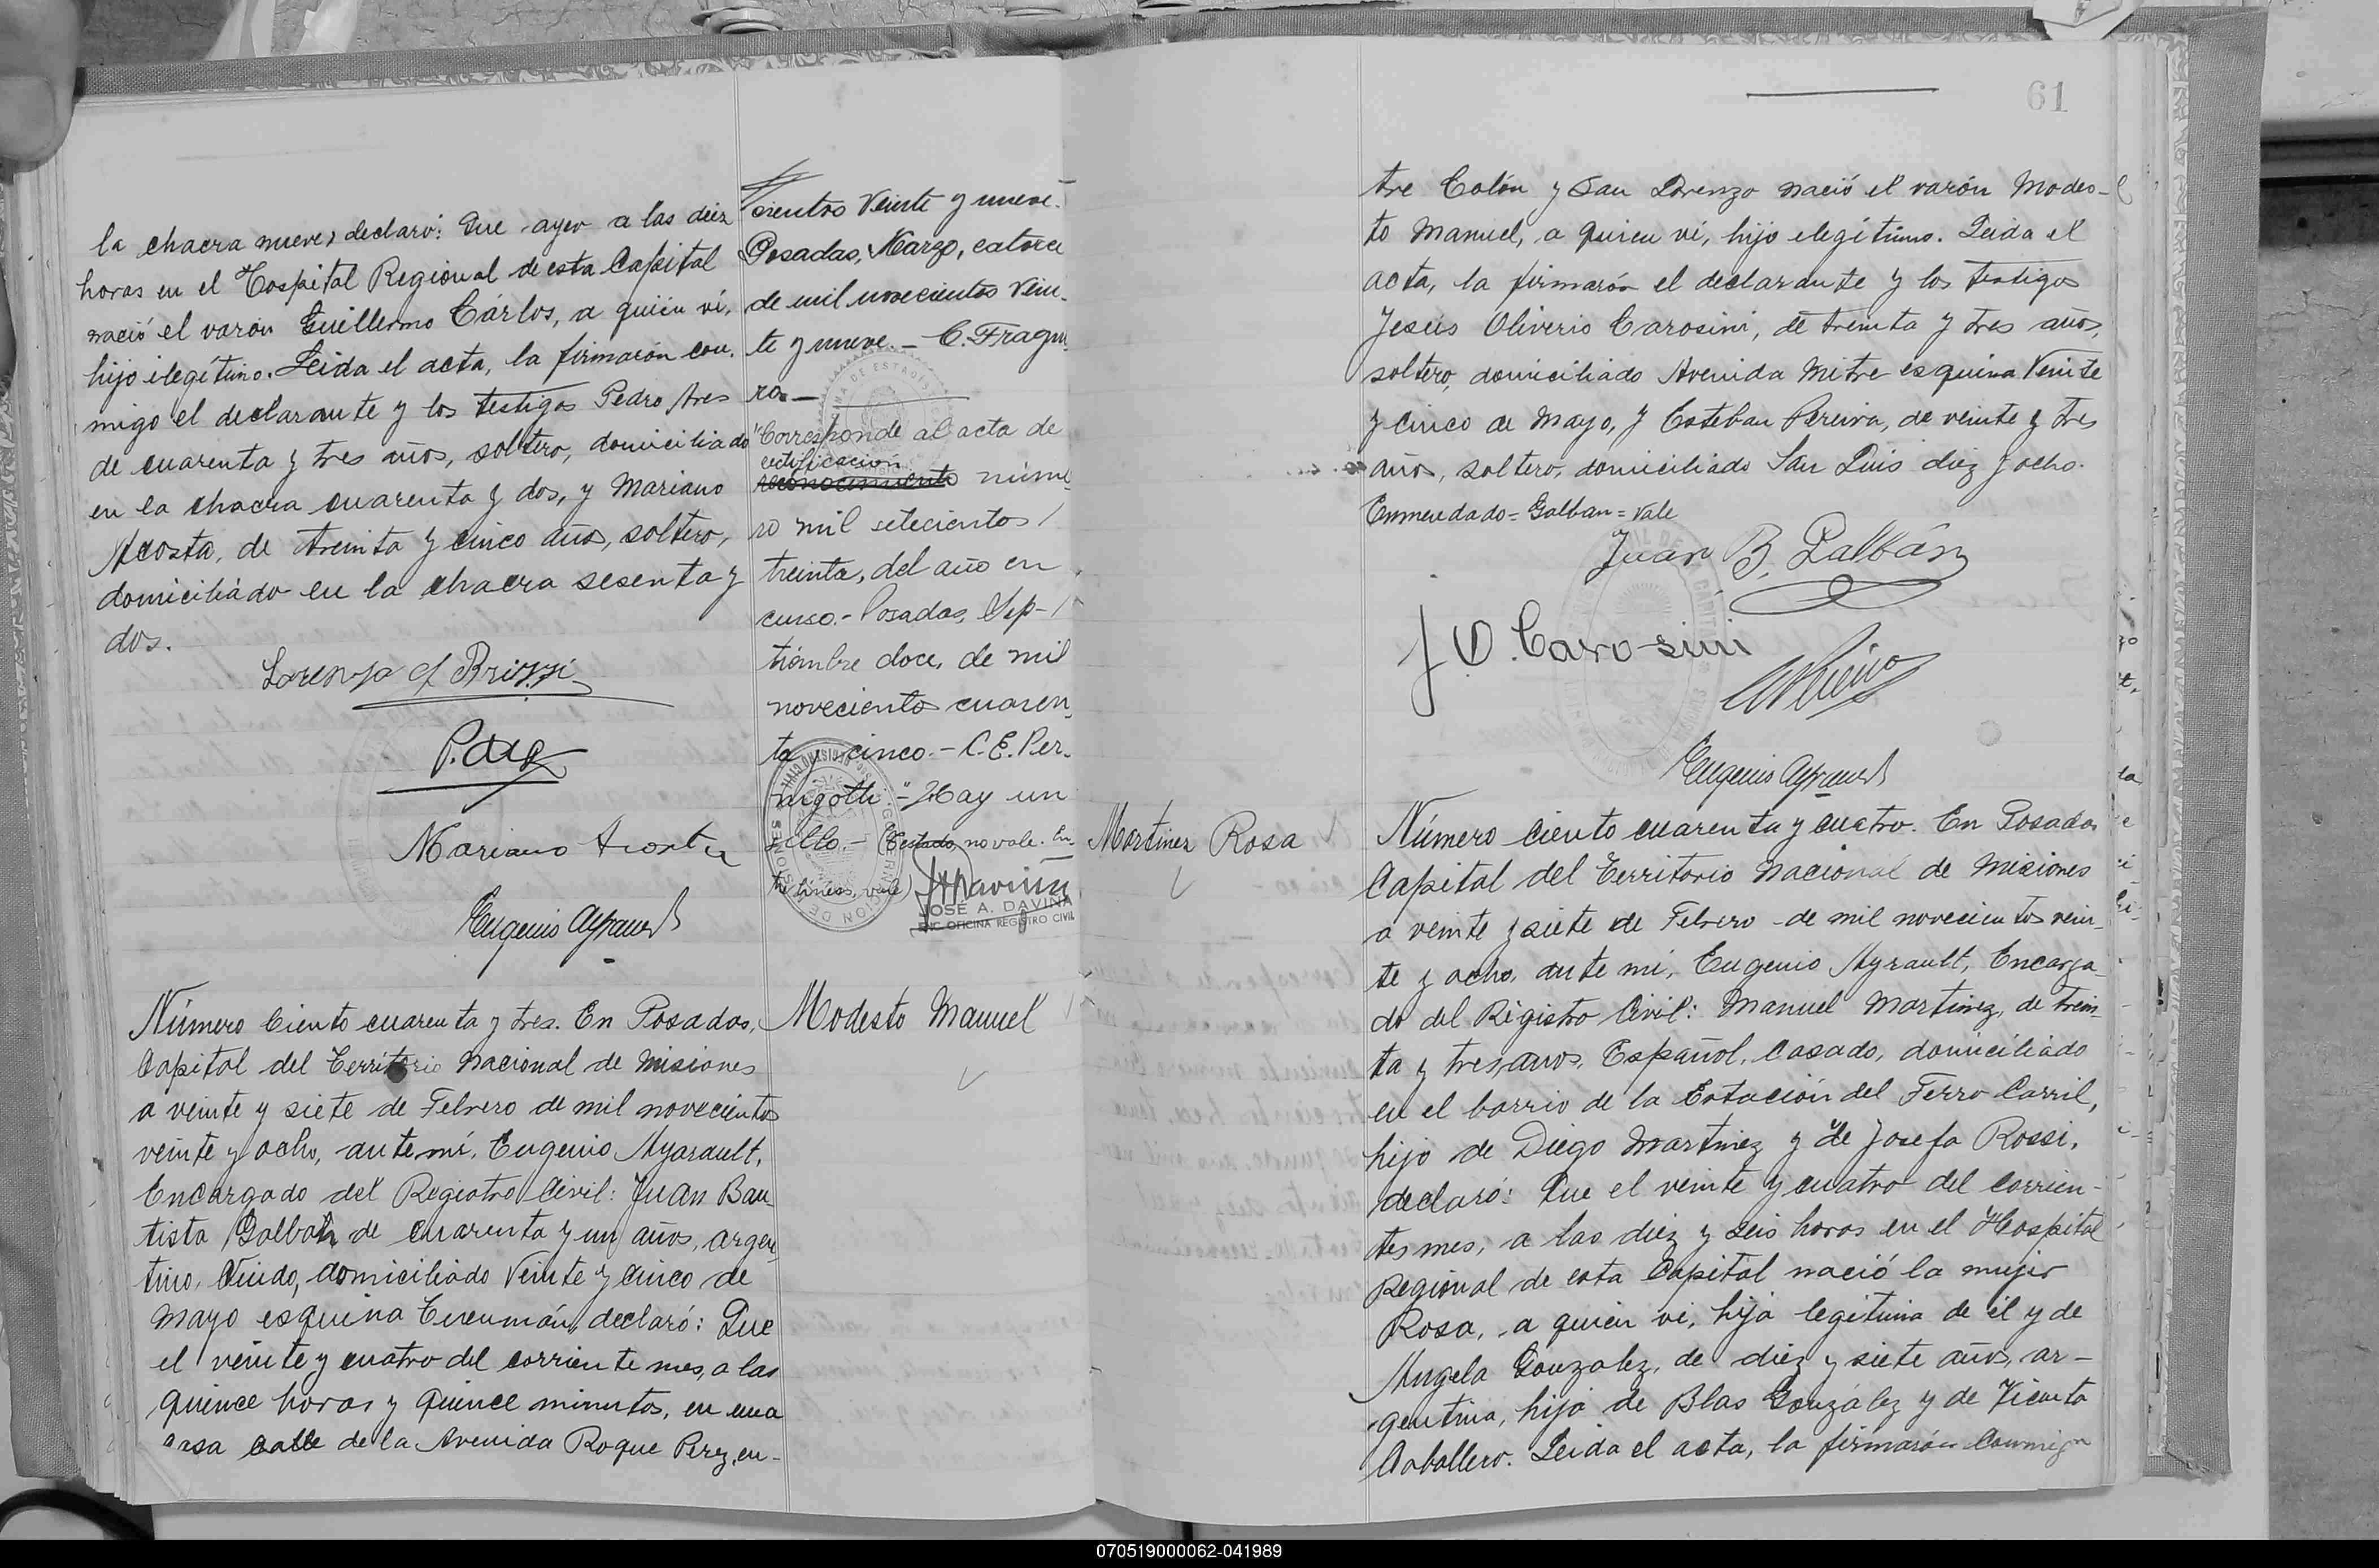 la chacra nueve, declaró: Que ayer a las diez
horas en el Hospital Regional de esta Capital
nació el varón Guillermo Cárlos, a quién ví,
hijo ilegítimo. Leida el acta, la firmarón con-
migo el declarante y los testigos Pedro Ares
de cuarenta y tres años, soltero, domiciliado
en la chacra cuarenta y dos, y Mariano
Acosta, de treinta y cinco años, soltero,
domiciliado en la chacra sesenta y
dos.
Mariano Acosta
Eugenio Ayrault
Número Ciento cuarenta y tres. En Posadas,
Capital del Territorio Nacional de Misiones
a veinte y siete de Febrero de mil novecientos
veinte y ocho, ante mí, Eugenio Ayarault,
Encargado del Registro Civil: Juan Bau-
tista Galban de cuarenta y un años, argen-
tino, Viudo, domiciliado Veinte y Cinco de
Mayo esquina Tucumán, declaró: Que
el veinte y cuatro del corriente mes, a las
quince horas y quince minutos, en una
casa calle de la Avenida Roque Perez, en-
cientos Veinte y nueve.
Posadas, Marzo, catorce
de mil novecientos Vein-
te y nueve. - C. Fragu
ra. -
"Corresponde al acta de
rectificacion
reconocimiento núme-
ro mil setecientos
treinta, del año en
curso. - Posadas, Sep-
tiembre doce, de mil
novecientos cuaren-
ta y cinco. - C. E. Per-
"- Hay un
sello. - (Testado, no vale. En-
tre lineas, vale)
JOSÉ A. DAVIÑA
ENC. OFICINA REGISTRO CIVIL
Modesto Manuel
61
tre Colón y San Lorenzo nació el varón Modes-
to Manuel, a quien ví, hijo ilegítimo. Leida el
acta, la firmarón el declarante y los testigos
Jesús Oliverio Carosini, de treinta y tres años,
soltero, domiciliado Avenida Mitre esquina Veinte
y cinco de Mayo, y Esteban Pereira, de veinte y tres
años, soltero, domiciliado San Luis diez y ocho.
Enmendado = Galban = Vale
Juan B. Galbán
J. O. Carosini
Eugenio Ayrault
Martinez Rosa
Número ciento cuarenta y cuatro. En Posadas
Capital del Territorio Nacional de Misiones
a veinte y siete de Febrero de mil novecientos vein-
te y ocho, ante mi, Eugenio Ayrault, Encarga-
do del Registro Civil: Manuel Martinez, de trein-
ta y tres años, Español, Casado, domiciliado
en el barrio de la Estación del Ferro Carril,
hijo de Diego Martinez y de Josefa Rossi,
declaró: Que el veinte y cuatro del corrien-
tes mes, a las diez y seis horas en el Hospital
Regional de esta Capital nació la mujer
Rosa, a quien ví, hija legítima de él y de
Angela González, de diez y siete años, ar-
gentina, hija de Blas González y de Vicenta
Caballero. Leida el acta, la firmarón conmigo
070519000062-041989